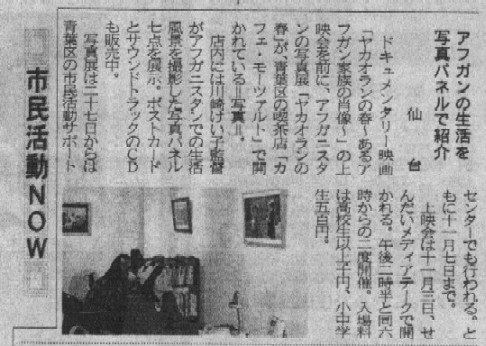 アフガンの生活を
写真パネルで紹介
仙台
ドキュメンタリー映画
「ヤカオランの春〜あるア
フガン家族の肖像〜」の上
映会を前に、アフガニスタ
ンの写真展「ヤカオランの
春」が、青葉区の喫茶店「カ
フェ・モーツァルト」で開
かれている＝写真＝。
店内には川崎けい子監督
がアフガニスタンでの生活
風景を撮影した写真パネル
七点を展示。ポストカード
とサウンドトラックのCD
も販売中。
写真展は二十七日からは
青葉区の市民活動サポート
センターでも行われる。と
もに十一月七日まで。
上映会は十一月三日、せ
んだいメディアテークで開
かれる。午後二時半と同六
時からの二度開催。入場料
は高校生以上千円、小中学
生五百円。
市民活動NOW